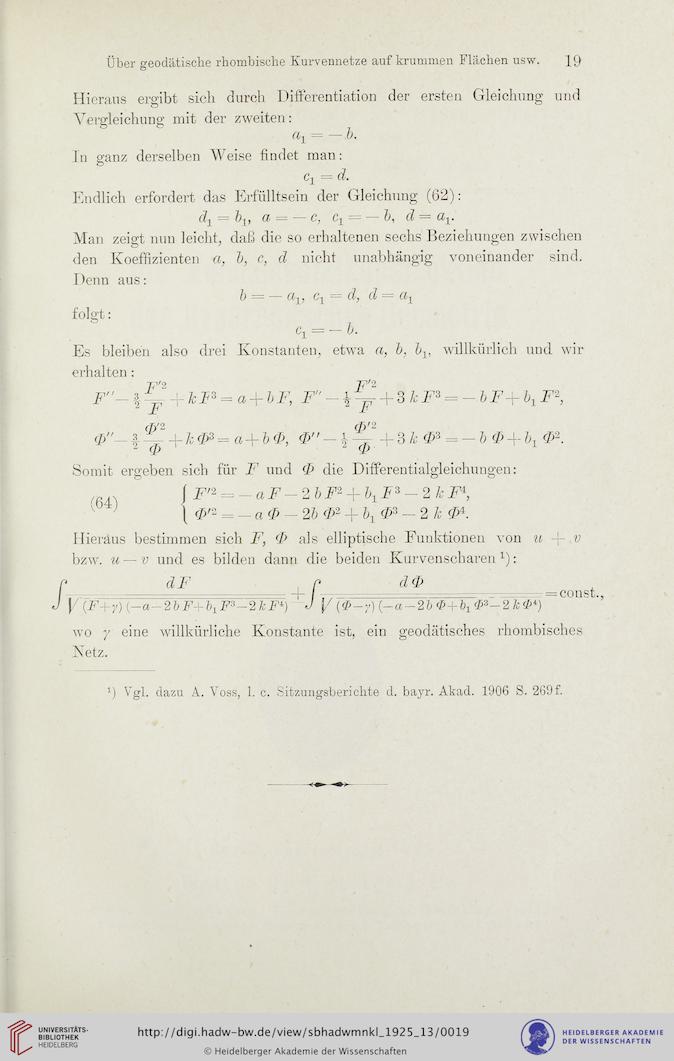 Über geodätische rhombische Kurvennetze auf krummen Flächen usw. 19
Hieraus ergibt sich durch Differentiation der ersten Gleichung und
Vergleichung mit der zweiten:
a₁ = — b.
In ganz derselben Weise findet man:
c₁ = d.
Endlich erfordert das Erfülltsein der Gleichung (62):
d₁ = b₁, a = — c, c₁ = — b, d = a₁.
Man zeigt nun leicht, daß die so erhaltenen sechs Beziehungen zwischen
den Koeffizienten a, b, c, d nicht unabhängig voneinander sind.
Denn aus:
b = — a₁, c₁ = d, d = a₁
folgt:
c₁ = — b.
Es bleiben also drei Konstanten, etwa a, b, b₁, willkürlich und wir
erhalten:
F″ — 3/2 F′²/F + k F³ = a + b F, F″ — 1/2 F′²/F + 3 k F³ = — b F + b₁ F²,
Φ″ — 3/2 Φ′²/Φ + k Φ³ = a + b Φ, Φ″ — 1/2 Φ′²/Φ + 3 k Φ³ = — b Φ + b₁ Φ².
Somit ergeben sich für F und Φ die Differentialgleichungen:
(64) { F′² = — a F — 2 b F² + b₁ F³ — 2 k F⁴,
Φ′² = — a Φ — 2b Φ² + b₁ Φ³ — 2 k Φ⁴.
Hieraus bestimmen sich F, Φ als elliptische Funktionen von u + v
bzw. u — v und es bilden dann die beiden Kurvenscharen ¹):
∫ dF / √(F+γ) (—a—2b F+b₁ F³—2k F⁴) + ∫ dΦ / √(Φ—γ) (—a—2b Φ+b₁ Φ³—2 k Φ⁴) = const.,
wo γ eine willkürliche Konstante ist, ein geodätisches rhombisches
Netz.
¹) Vgl. dazu A. Voss, l. c. Sitzungsberichte d. bayr. Akad. 1906 S. 269f.
UNIVERSITÄTS-
BIBLIOTHEK
HEIDELBERG
http://digi.hadw-bw.de/view/sbhadwmnkl_1925_13/0019
© Heidelberger Akademie der Wissenschaften
HEIDELBERGER AKADEMIE
DER WISSENSCHAFTEN